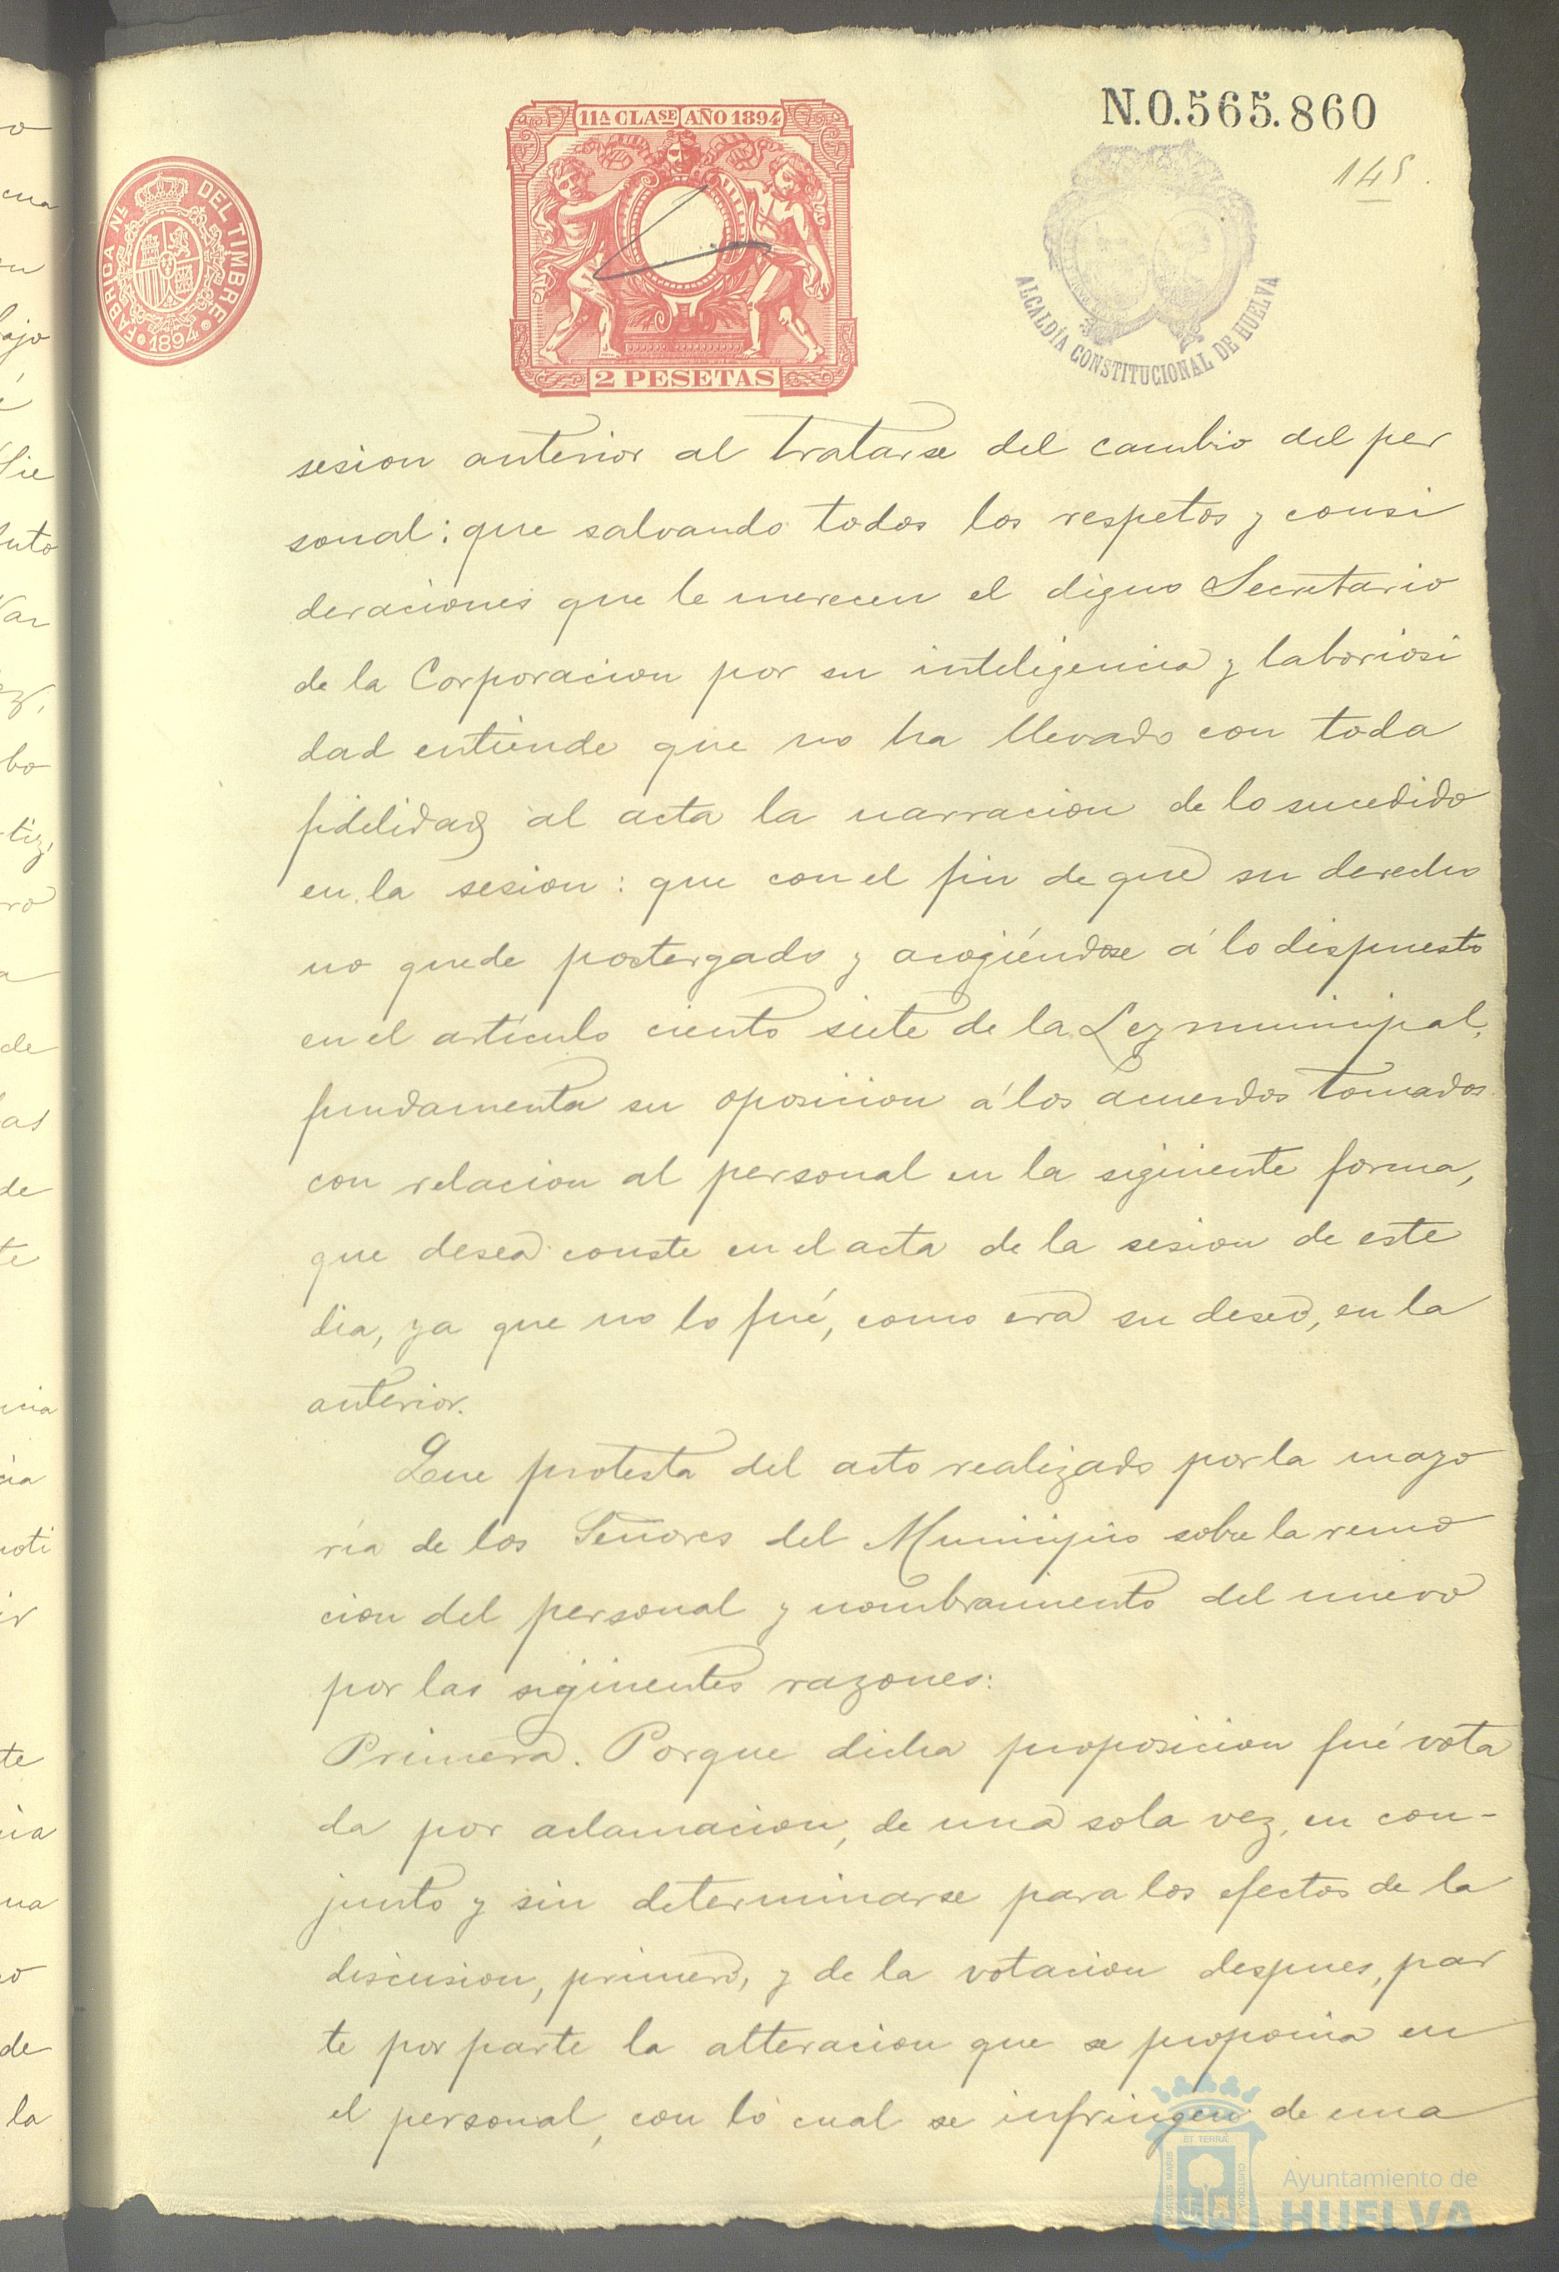 11ª CLASE AÑO 1894
N.0.565.860
145
FABRICA NL DEL TIMBRE
1894
2 PESETAS
ALCALDÍA CONSTITUCIONAL DE HUELVA
sesion anterior al tratarse del cambio del per
sonal: que salvando todos los respetos y consi
deraciones que le merecen el digno Secretario
de la Corporacion por su inteligencia y laboriosi
dad entiende que no ha llevado con toda
fidelidad al acta la narracion de lo sucedido
en la sesion: que con el fin de que su derecho
no quede postergado y acogiéndose á lo dispuesto
en el artículo ciento siete de la Ley municipal,
fundamenta su oposicion á los acuerdos tomados
con relacion al personal en la siguiente forma,
que desea conste en el acta de la sesion de este
dia, ya que no lo fué, como era su deseo, en la
anterior.
Que protesta del acto realizado por la mayo
ría de los Señores del Municipio sobre la remo
cion del personal y nombramiento del nuevo
por las siguientes razones:
Primera. Porque dicha proposicion fué vota
da por aclamacion, de una sola vez, en con-
junto y sin determinarse para los efectos de la
discusion, primero, y de la votacion despues, par
te por parte la alteracion que se proponia en
el personal, con lo cual se infringen de una
Ayuntamiento de
HUELVA